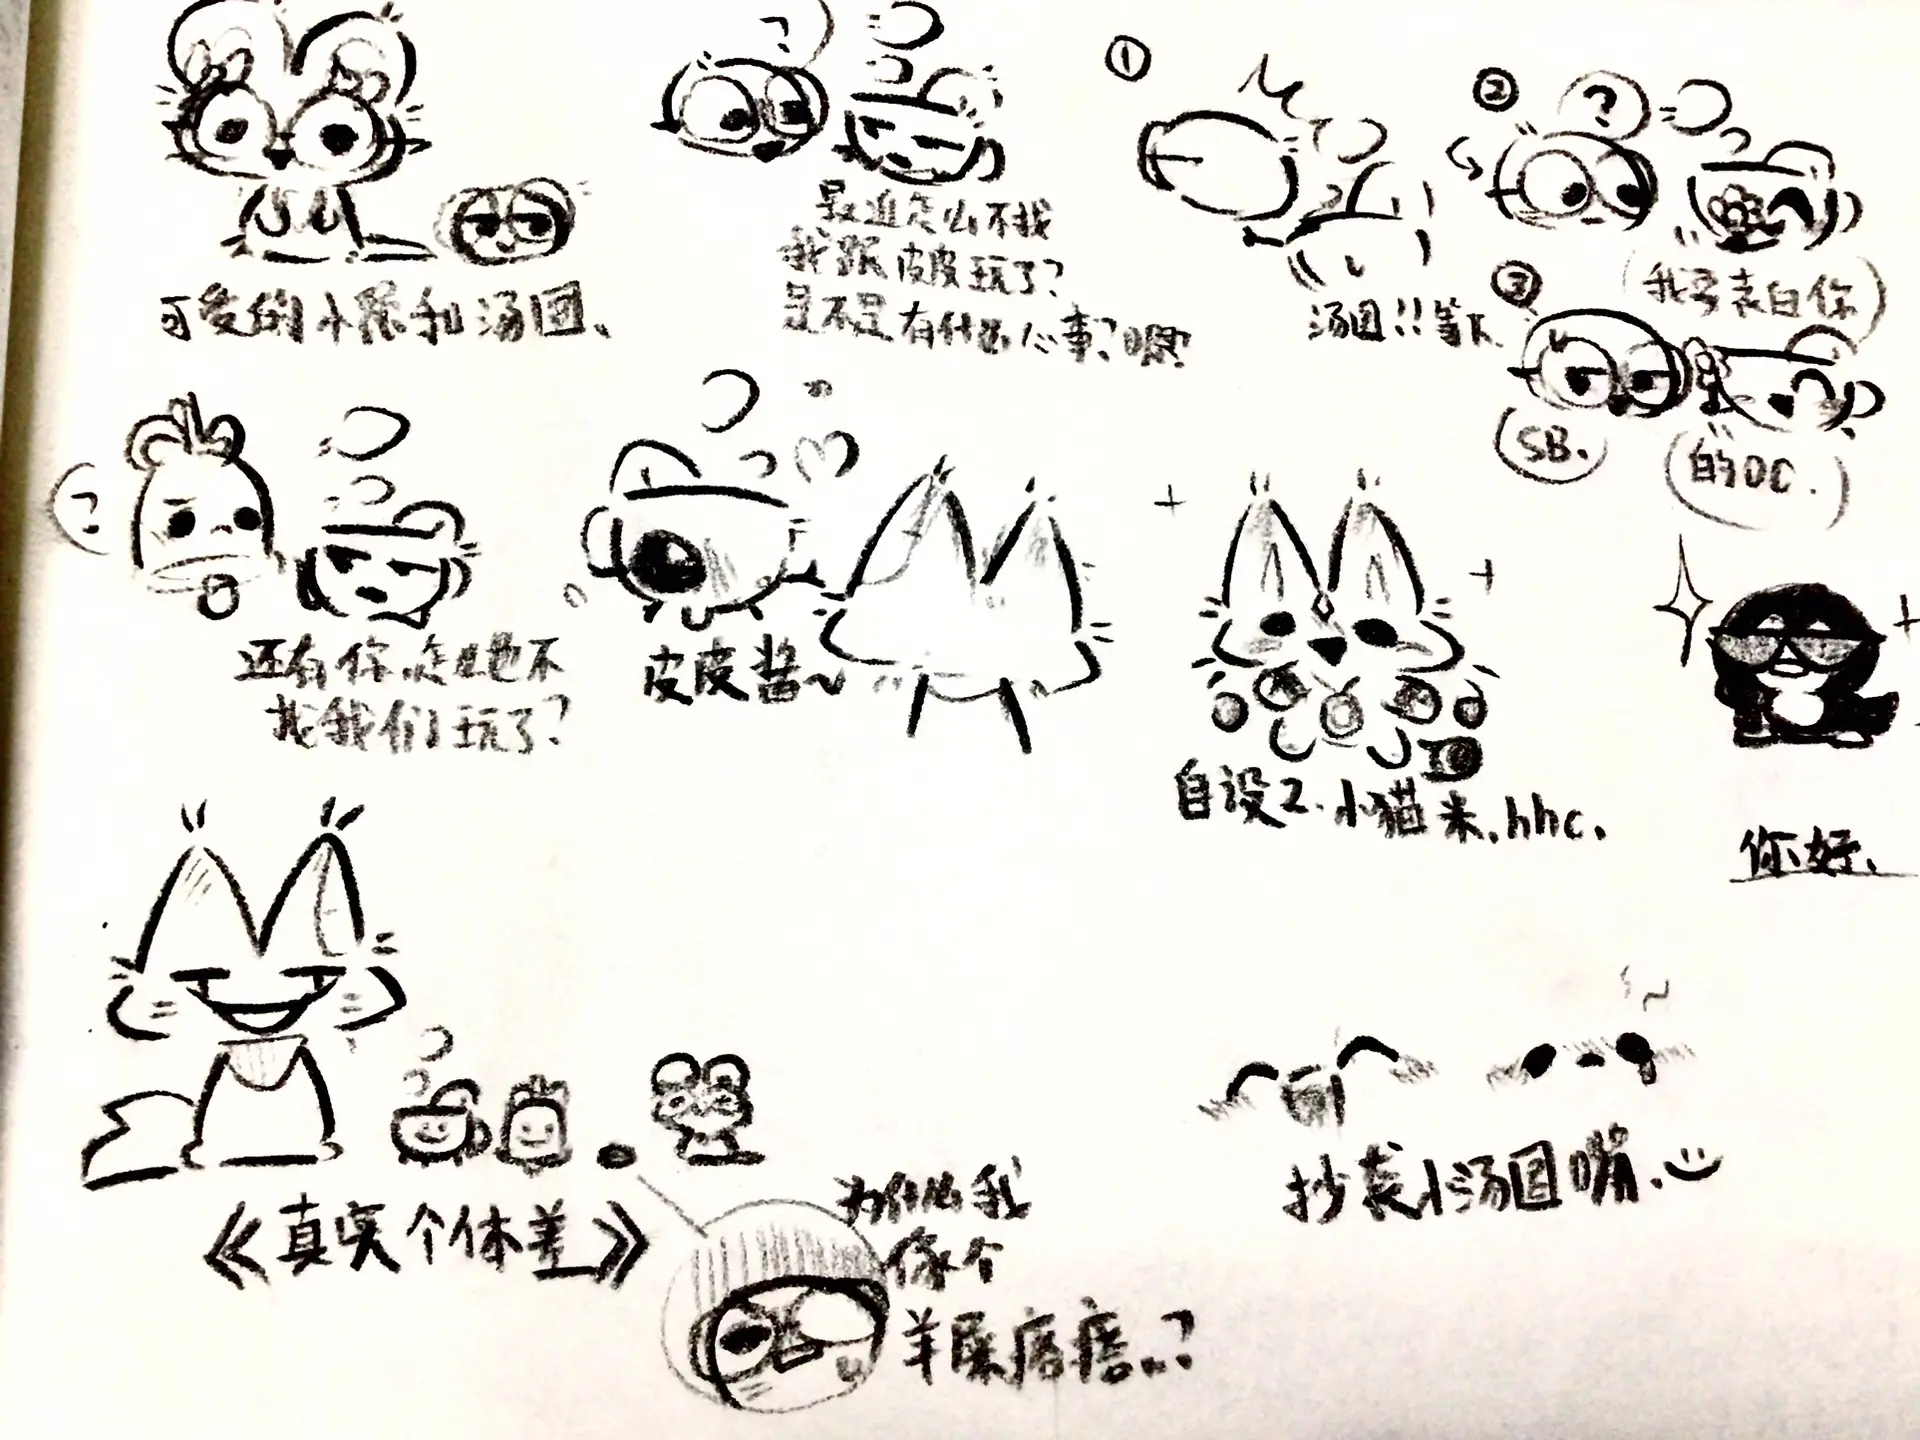 可爱的小鼠和汤团、
?
最近怎么不找
我跟皮皮玩了?
是不是有什么心事?嗯?
①
汤团!!等下.
②
?
我要表白你
③
SB.
的OC.
?
还有你.怎么也不
找我们玩了?
皮皮酱~
自设2.小猫米.hhc.
你好、
《真实个体差》
为什么我
像个
羊屎
?
抄袭小汤团嘴.